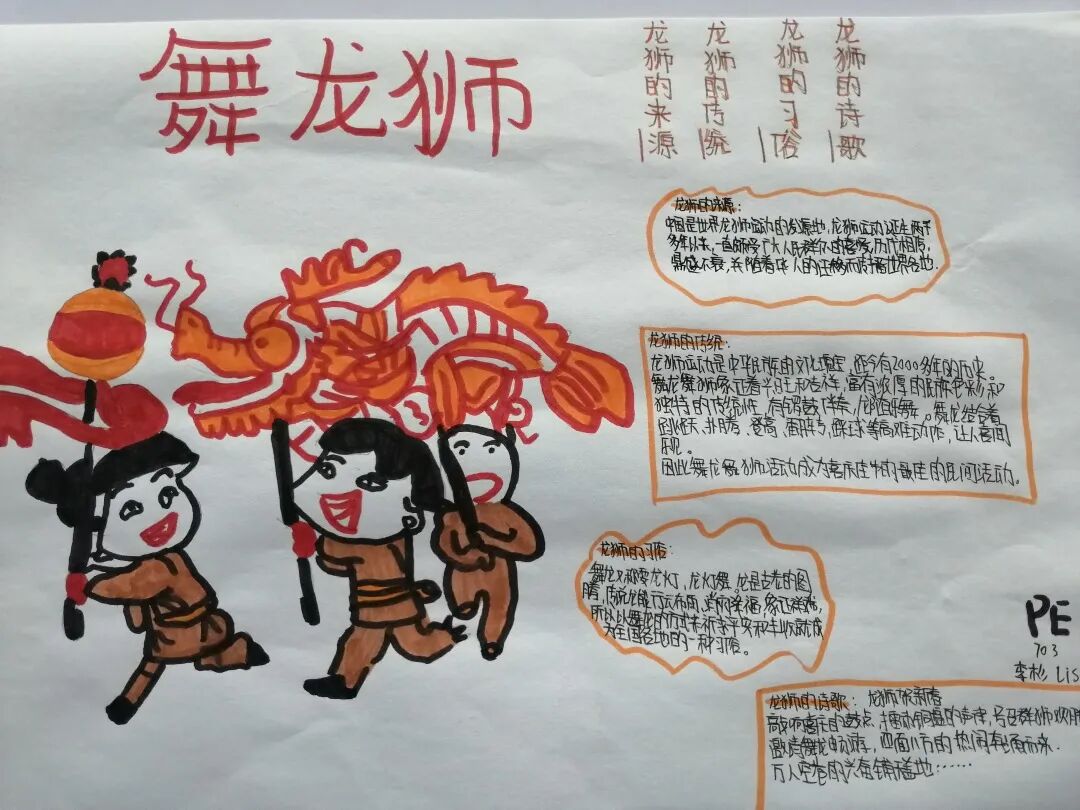 舞龙狮
龙狮的来源
龙狮的传统
龙狮的习俗
龙狮的诗歌
龙狮的来源：
中国是世界龙狮运动的发源地,龙狮运动诞生两千
多年以来,一直深受广大人民群众的喜爱,历代相
鼎盛不衰,并随着华人的迁移而传播世界各地.
龙狮的传统：
龙狮运动是中华民族的文化瑰宝,迄今有2000多年的历史
舞龙舞狮象征着兴旺和吉祥,富有浓厚的民族色彩和
独特的传统性,有锣鼓伴奏,龙狮
高难动作,让人喜闻
乐见。
因此舞龙舞狮活动成为喜庆佳节的民间活动。
龙狮的习俗：
舞龙又称耍龙灯,龙灯舞。龙是古老的图
腾,传说龙能行云布雨,消灾降福,象征祥瑞,
所以以舞龙的方式来祈求平安和丰收就成
为全国各地的一种习俗。
PE
703
李杉 Lis
龙狮的诗歌：龙狮贺新春
敲响喜庆的鼓点,
邀请舞龙,四面八方的热闹而来.
万人空巷的兴奋铺天盖地……